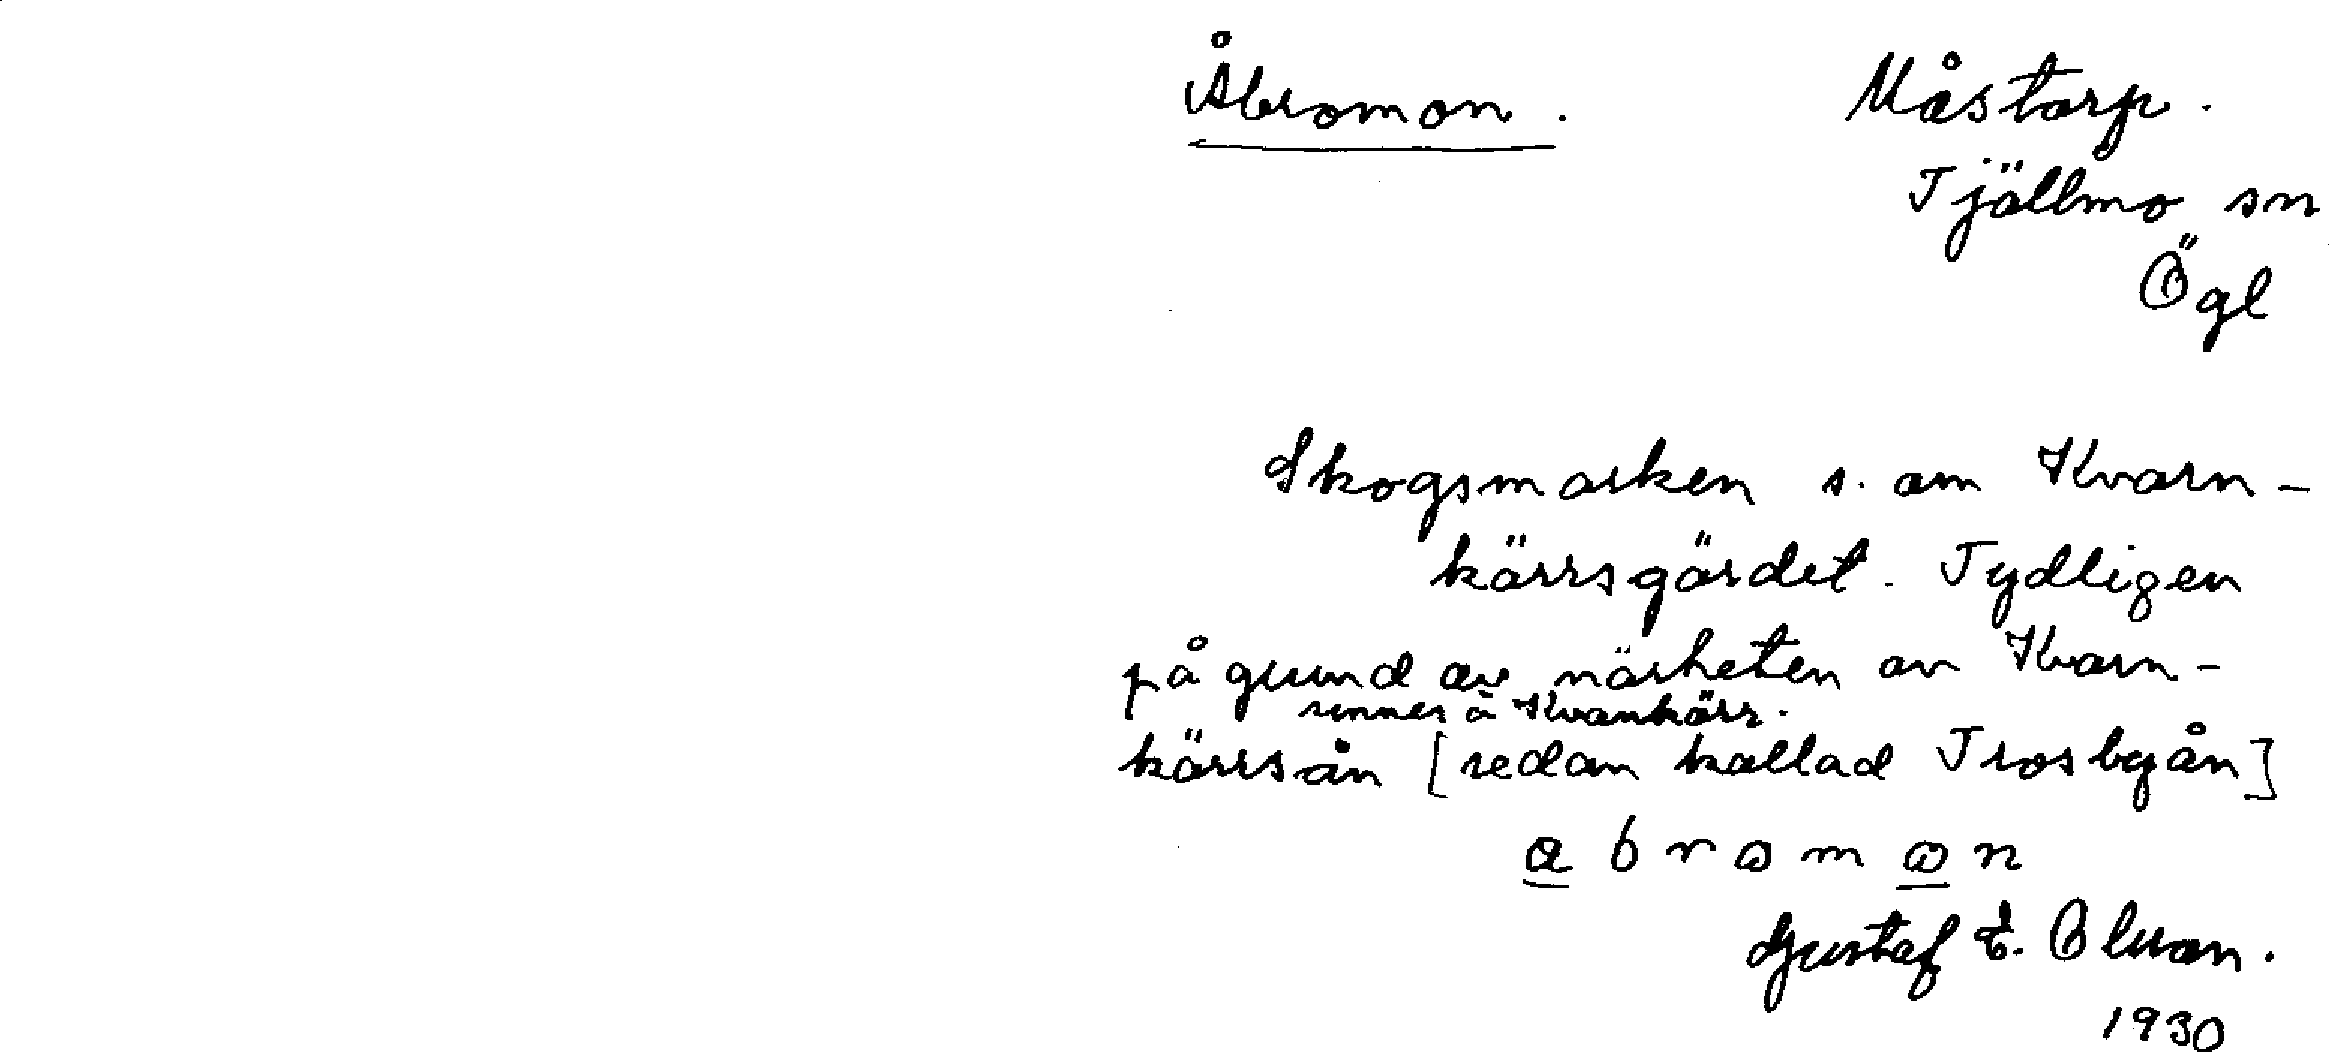 Åbromon. Måstorp.
Tjällmo sn
Ögl
Skogsmarken s. om Kvarn-
kärrsgärdet. Tydligen
på grund av närheten av Kvarn-
kärrsån [redan kallad Trosbyån]
a b r o m o n
Gustaf E. Olsson.
1930